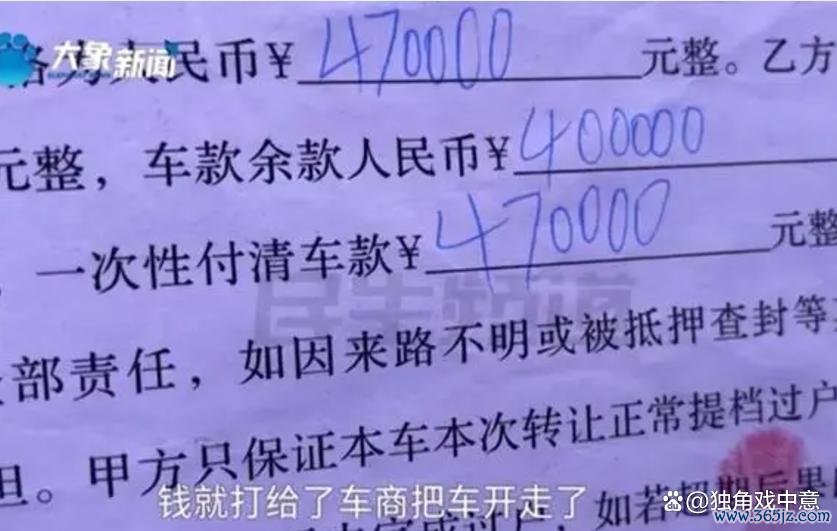 大象新闻
格为人民币¥ 470000 元整。乙方
元整，车款余款人民币¥ 400000
，一次性付清车款¥ 470000 元整
民生频道
部责任，如因来路不明或被抵押查封等
担。甲方只保证本车本次转让正常提档过户
钱就打给了车商把车开走了
如若超期后果
@独角戏中意
www.365jz.com